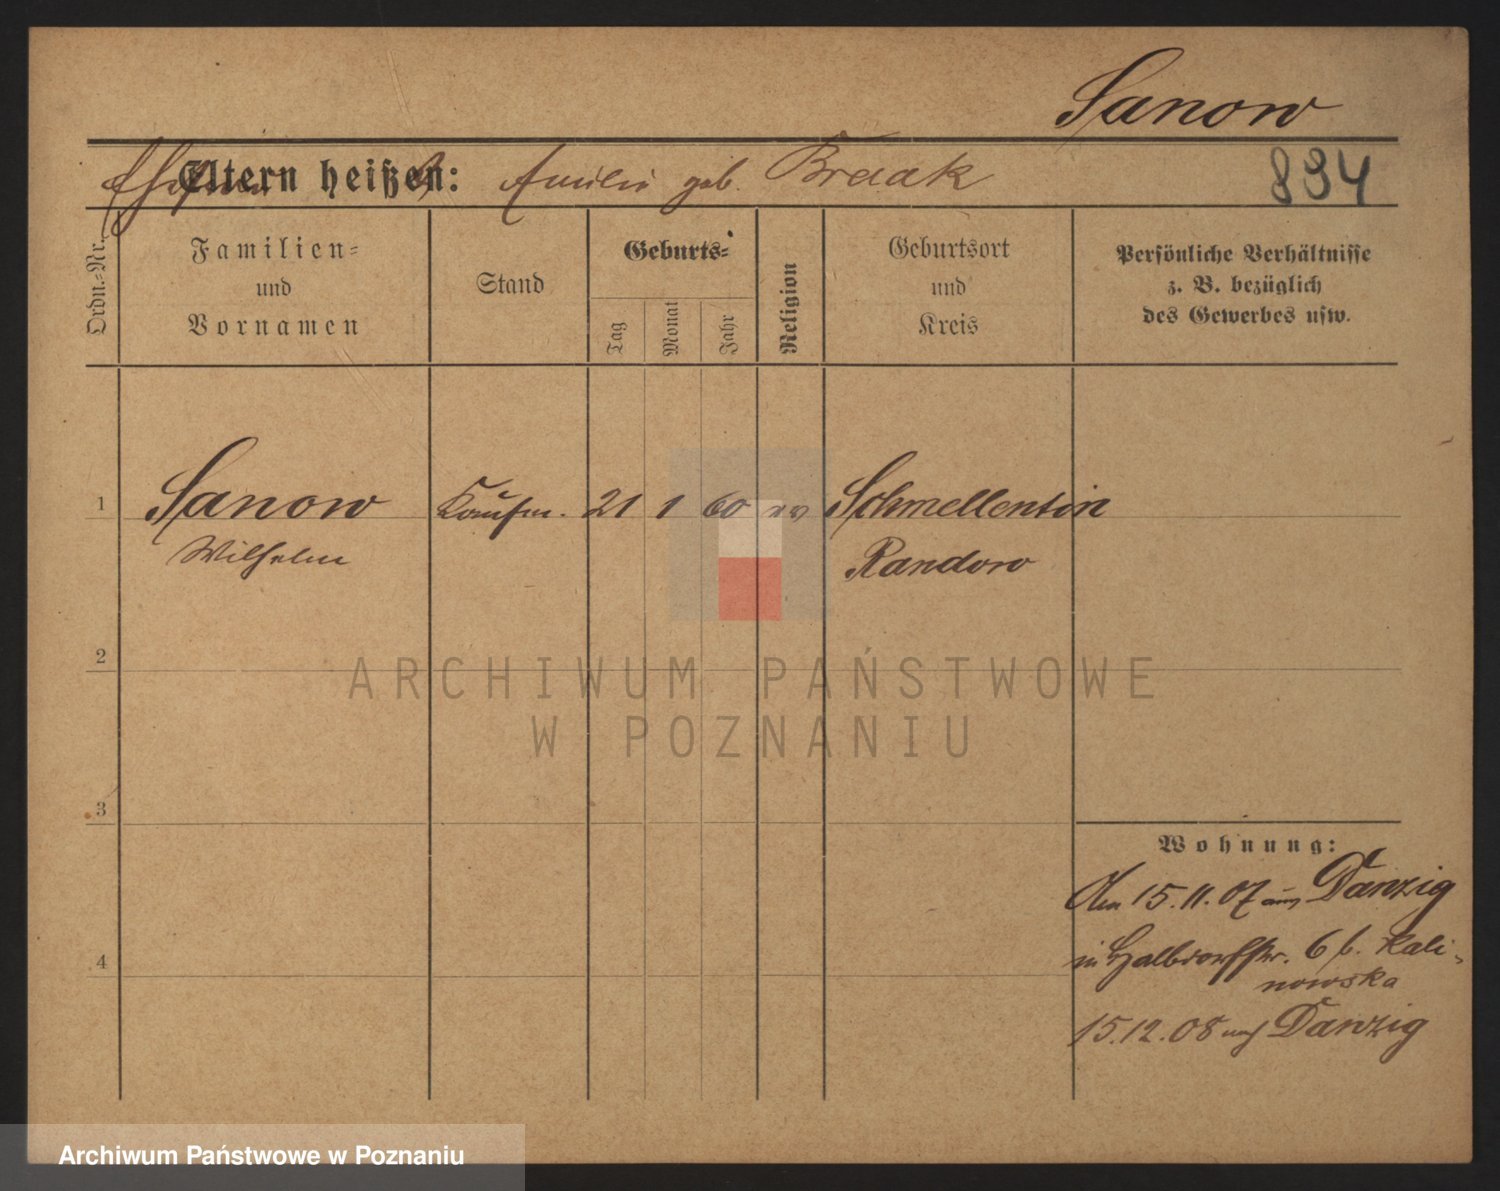 Sanow
Eltern heißen: Emilie geb. Braak
834
Ordn.-Nr.
Familien-
und
Vornamen
Stand
Geburts-
Tag
Monat
Jahr
Religion
Geburtsort
und
Kreis
Persönliche Verhältnisse
z. B. bezüglich
des Gewerbes usw.
1 Sanow Kaufm. 21 1 60 ev Schmellentin
Wilhelm Randow
2
ARCHIWUM PAŃSTWOWE
W POZNANIU
3
Wohnung:
Am 15.11.07 aus Danzig
4
in Halbdorfstr. 6 b. Kali-
nowska
15.12.08 nach Danzig
Archiwum Państwowe w Poznaniu